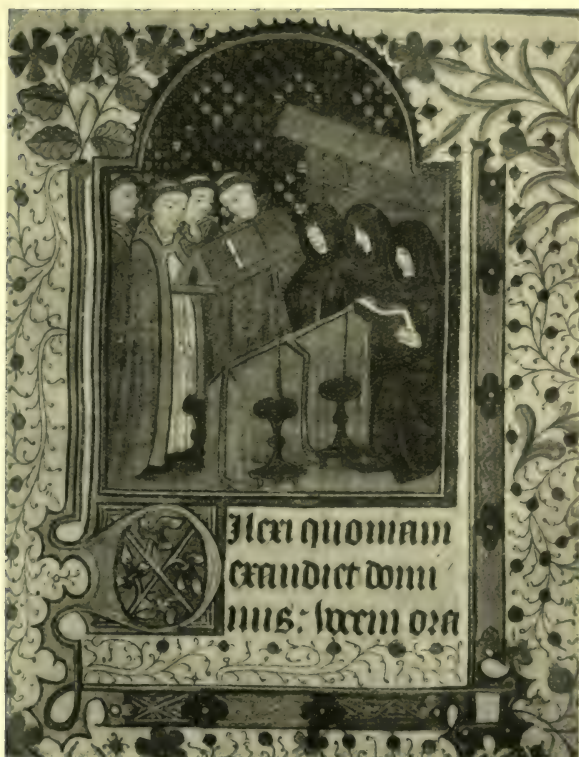 Dilexi quoniam
exaudiet domi
nus: vocem ora